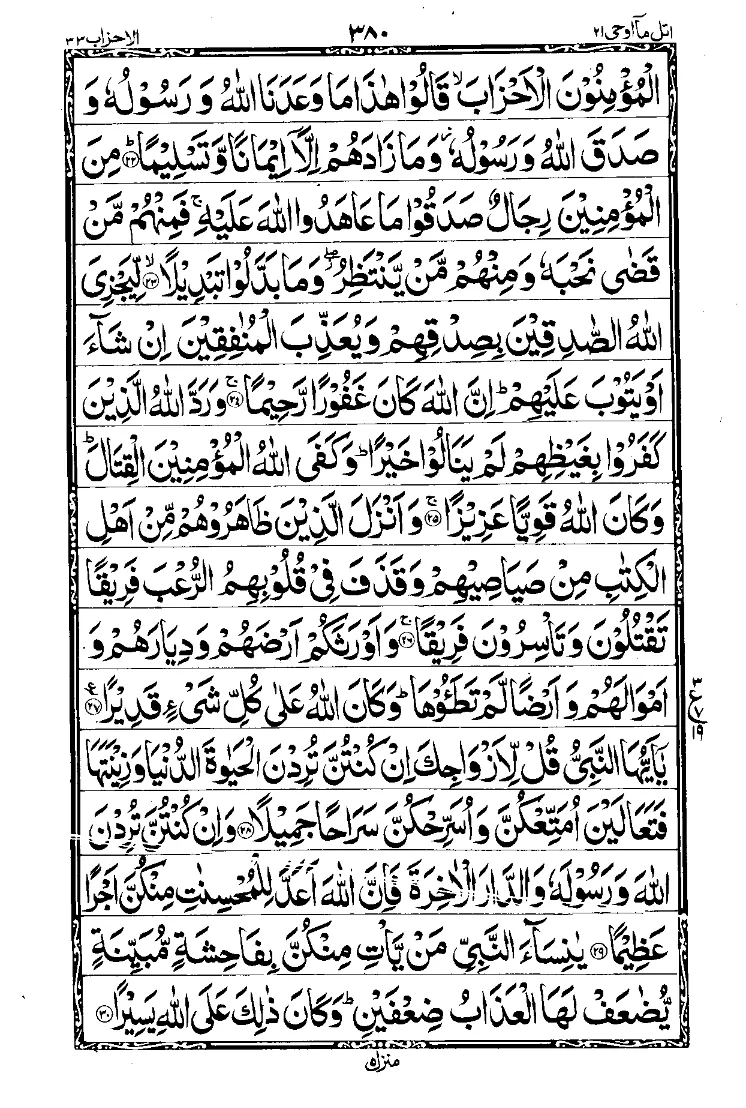 اتل مآ اوحی ۲۱
۳۸۰
الاحزاب ۳۳
الْمُؤْمِنُوْنَ الْاَحْزَابَ ۙ قَالُوْا هٰذَا مَا وَعَدَنَا اللّٰهُ وَ رَسُوْلُهٗ وَ
صَدَقَ اللّٰهُ وَ رَسُوْلُهٗ ۫ وَ مَا زَادَهُمْ اِلَّاۤ اِيْمَانًا وَّ تَسْلِيْمًا ؕ۲۲ مِنَ
الْمُؤْمِنِيْنَ رِجَالٌ صَدَقُوْا مَا عَاهَدُوا اللّٰهَ عَلَيْهِ ۚ فَمِنْهُمْ مَّنْ
قَضٰى نَحْبَهٗ وَ مِنْهُمْ مَّنْ يَّنْتَظِرُ ۖ وَ مَا بَدَّلُوْا تَبْدِيْلًا ۙ۲۳ لِّيَجْزِيَ
اللّٰهُ الصّٰدِقِيْنَ بِصِدْقِهِمْ وَ يُعَذِّبَ الْمُنٰفِقِيْنَ اِنْ شَآءَ
اَوْ يَتُوْبَ عَلَيْهِمْ ؕ اِنَّ اللّٰهَ كَانَ غَفُوْرًا رَّحِيْمًا ۚ۲۴ وَ رَدَّ اللّٰهُ الَّذِيْنَ
كَفَرُوْا بِغَيْظِهِمْ لَمْ يَنَالُوْا خَيْرًا ؕ وَ كَفَى اللّٰهُ الْمُؤْمِنِيْنَ الْقِتَالَ ؕ
وَ كَانَ اللّٰهُ قَوِيًّا عَزِيْزًا ۚ۲۵ وَ اَنْزَلَ الَّذِيْنَ ظَاهَرُوْهُمْ مِّنْ اَهْلِ
الْكِتٰبِ مِنْ صَيَاصِيْهِمْ وَ قَذَفَ فِيْ قُلُوْبِهِمُ الرُّعْبَ فَرِيْقًا
تَقْتُلُوْنَ وَ تَاْسِرُوْنَ فَرِيْقًا ۚ۲۶ وَ اَوْرَثَكُمْ اَرْضَهُمْ وَ دِيَارَهُمْ وَ
اَمْوَالَهُمْ وَ اَرْضًا لَّمْ تَطَـُٔوْهَا ؕ وَ كَانَ اللّٰهُ عَلٰى كُلِّ شَيْءٍ قَدِيْرًا ع۲۷
۳
ع
۷
۱۹
يٰۤاَيُّهَا النَّبِيُّ قُلْ لِّاَزْوَاجِكَ اِنْ كُنْتُنَّ تُرِدْنَ الْحَيٰوةَ الدُّنْيَا وَ زِيْنَتَهَا
فَتَعَالَيْنَ اُمَتِّعْكُنَّ وَ اُسَرِّحْكُنَّ سَرَاحًا جَمِيْلًا ۲۸ وَ اِنْ كُنْتُنَّ تُرِدْنَ
اللّٰهَ وَ رَسُوْلَهٗ وَ الدَّارَ الْاٰخِرَةَ فَاِنَّ اللّٰهَ اَعَدَّ لِلْمُحْسِنٰتِ مِنْكُنَّ اَجْرًا
عَظِيْمًا ۲۹ يٰنِسَآءَ النَّبِيِّ مَنْ يَّاْتِ مِنْكُنَّ بِفَاحِشَةٍ مُّبَيِّنَةٍ
يُّضٰعَفْ لَهَا الْعَذَابُ ضِعْفَيْنِ ؕ وَ كَانَ ذٰلِكَ عَلَى اللّٰهِ يَسِيْرًا ۳۰
منزل ۵